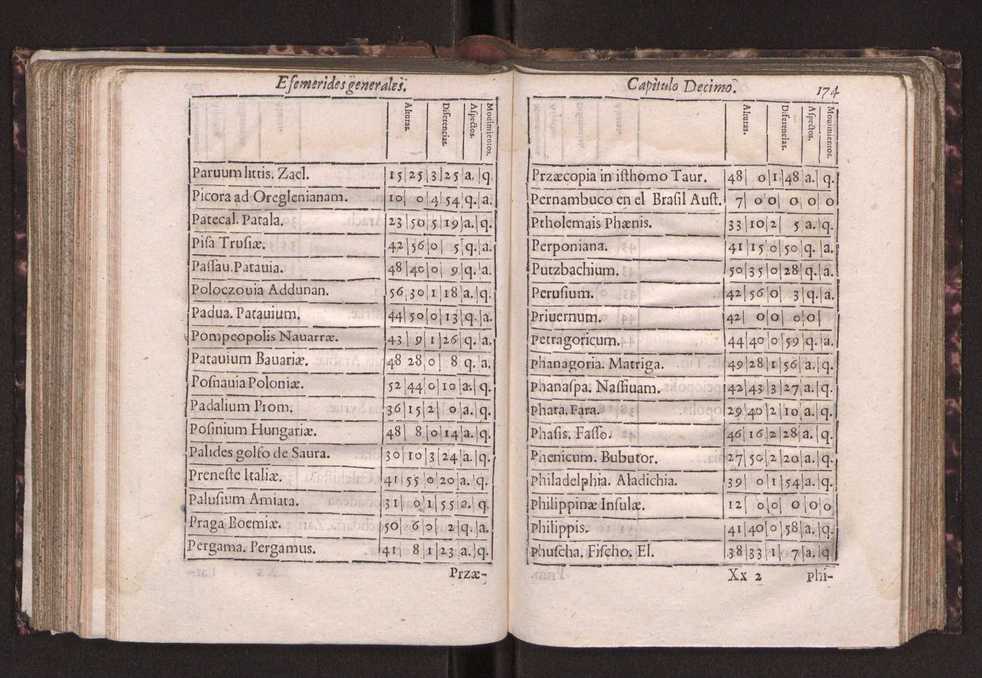 Efemerides generales.
Alturas. Diferencias. Aspectos. Mouimientos.
Paruum littis. Zacl. 15 25 3 25 a. q.
Picora ad Oreglenianam. 10 0 4 54 q. a.
Patecal. Patala. 23 50 5 19 a. q.
Pisa Trusiæ. 42 56 0 5 q. a.
Passau. Patauia. 48 40 0 9 q. a.
Poloczouia Addunan. 56 30 1 18 a. q.
Padua. Patauium. 44 50 0 13 q. a.
Pompeopolis Nauarræ. 43 9 1 26 q. a.
Patauium Bauariæ. 48 28 0 8 q. a.
Posnauia Poloniæ. 52 44 0 10 a. q.
Padalium Prom. 36 15 2 0 a. q.
Posinium Hungariæ. 48 8 0 14 a. q.
Paludes golfo de Saura. 30 10 3 24 a. q.
Preneste Italiæ. 41 55 0 20 a. q.
Palusium Amiata. 31 0 1 55 a. q.
Praga Boemiæ. 50 6 0 2 q. a.
Pergama. Pergamus. 41 8 1 23 a. q.
Przæ-
Capitulo Decimo. 174
Alturas. Diferencias. Aspectos. Mouimientos.
Przæcopia in isthomo Taur. 48 0 1 48 a. q.
Pernambuco en el Brasil Aust. 7 0 0 0 0 0
Ptholemais Phænis. 33 10 2 5 a. q.
Perponiana. 41 15 0 50 q. a.
Putzbachium. 50 35 0 28 q. a.
Perusium. 42 56 0 3 q. a.
Priuernum. 42 0 0 0 0
Petragoricum. 44 40 0 59 q. a.
Phanagoria. Matriga. 49 28 1 56 a. q.
Phanaspa. Nassiuam. 42 43 3 27 a. q.
Phara. Fara. 29 40 2 10 a. q.
Phasis. Fasso. 46 16 2 28 a. q.
Phenicum. Bubutor. 27 50 2 20 a. q.
Philadelphia. Aladichia. 39 0 1 54 a. q.
Philippinæ Insulæ. 12 0 0 0 0 0
Philippis. 41 40 0 58 a. q.
Phuscha. Fischo. El. 38 33 1 7 a. q
Xx 2 phi-